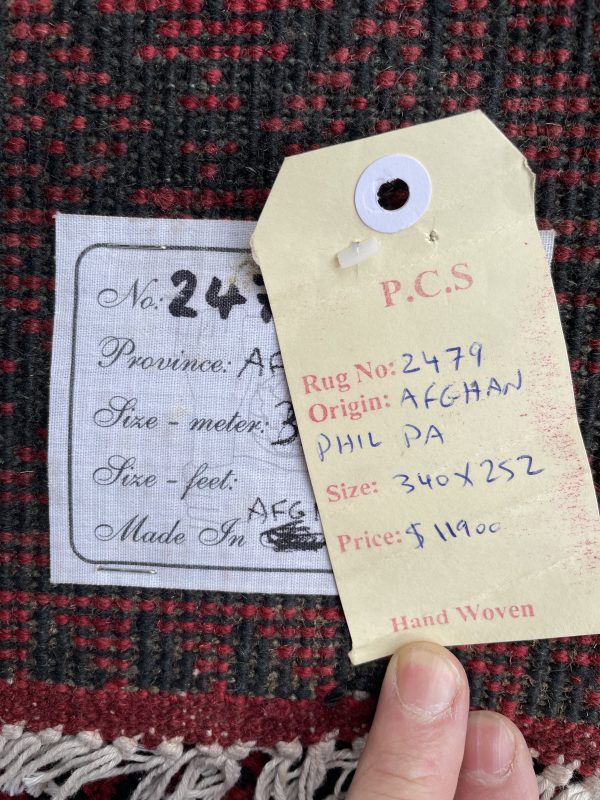 No: 247
Province: AF
Size - meter: 3
Size - feet:
Made In AFG
P.C.S
Rug No: 2479
Origin: AFGHAN
PHIL PA
Size: 340X252
Price: $ 11900
Hand Woven